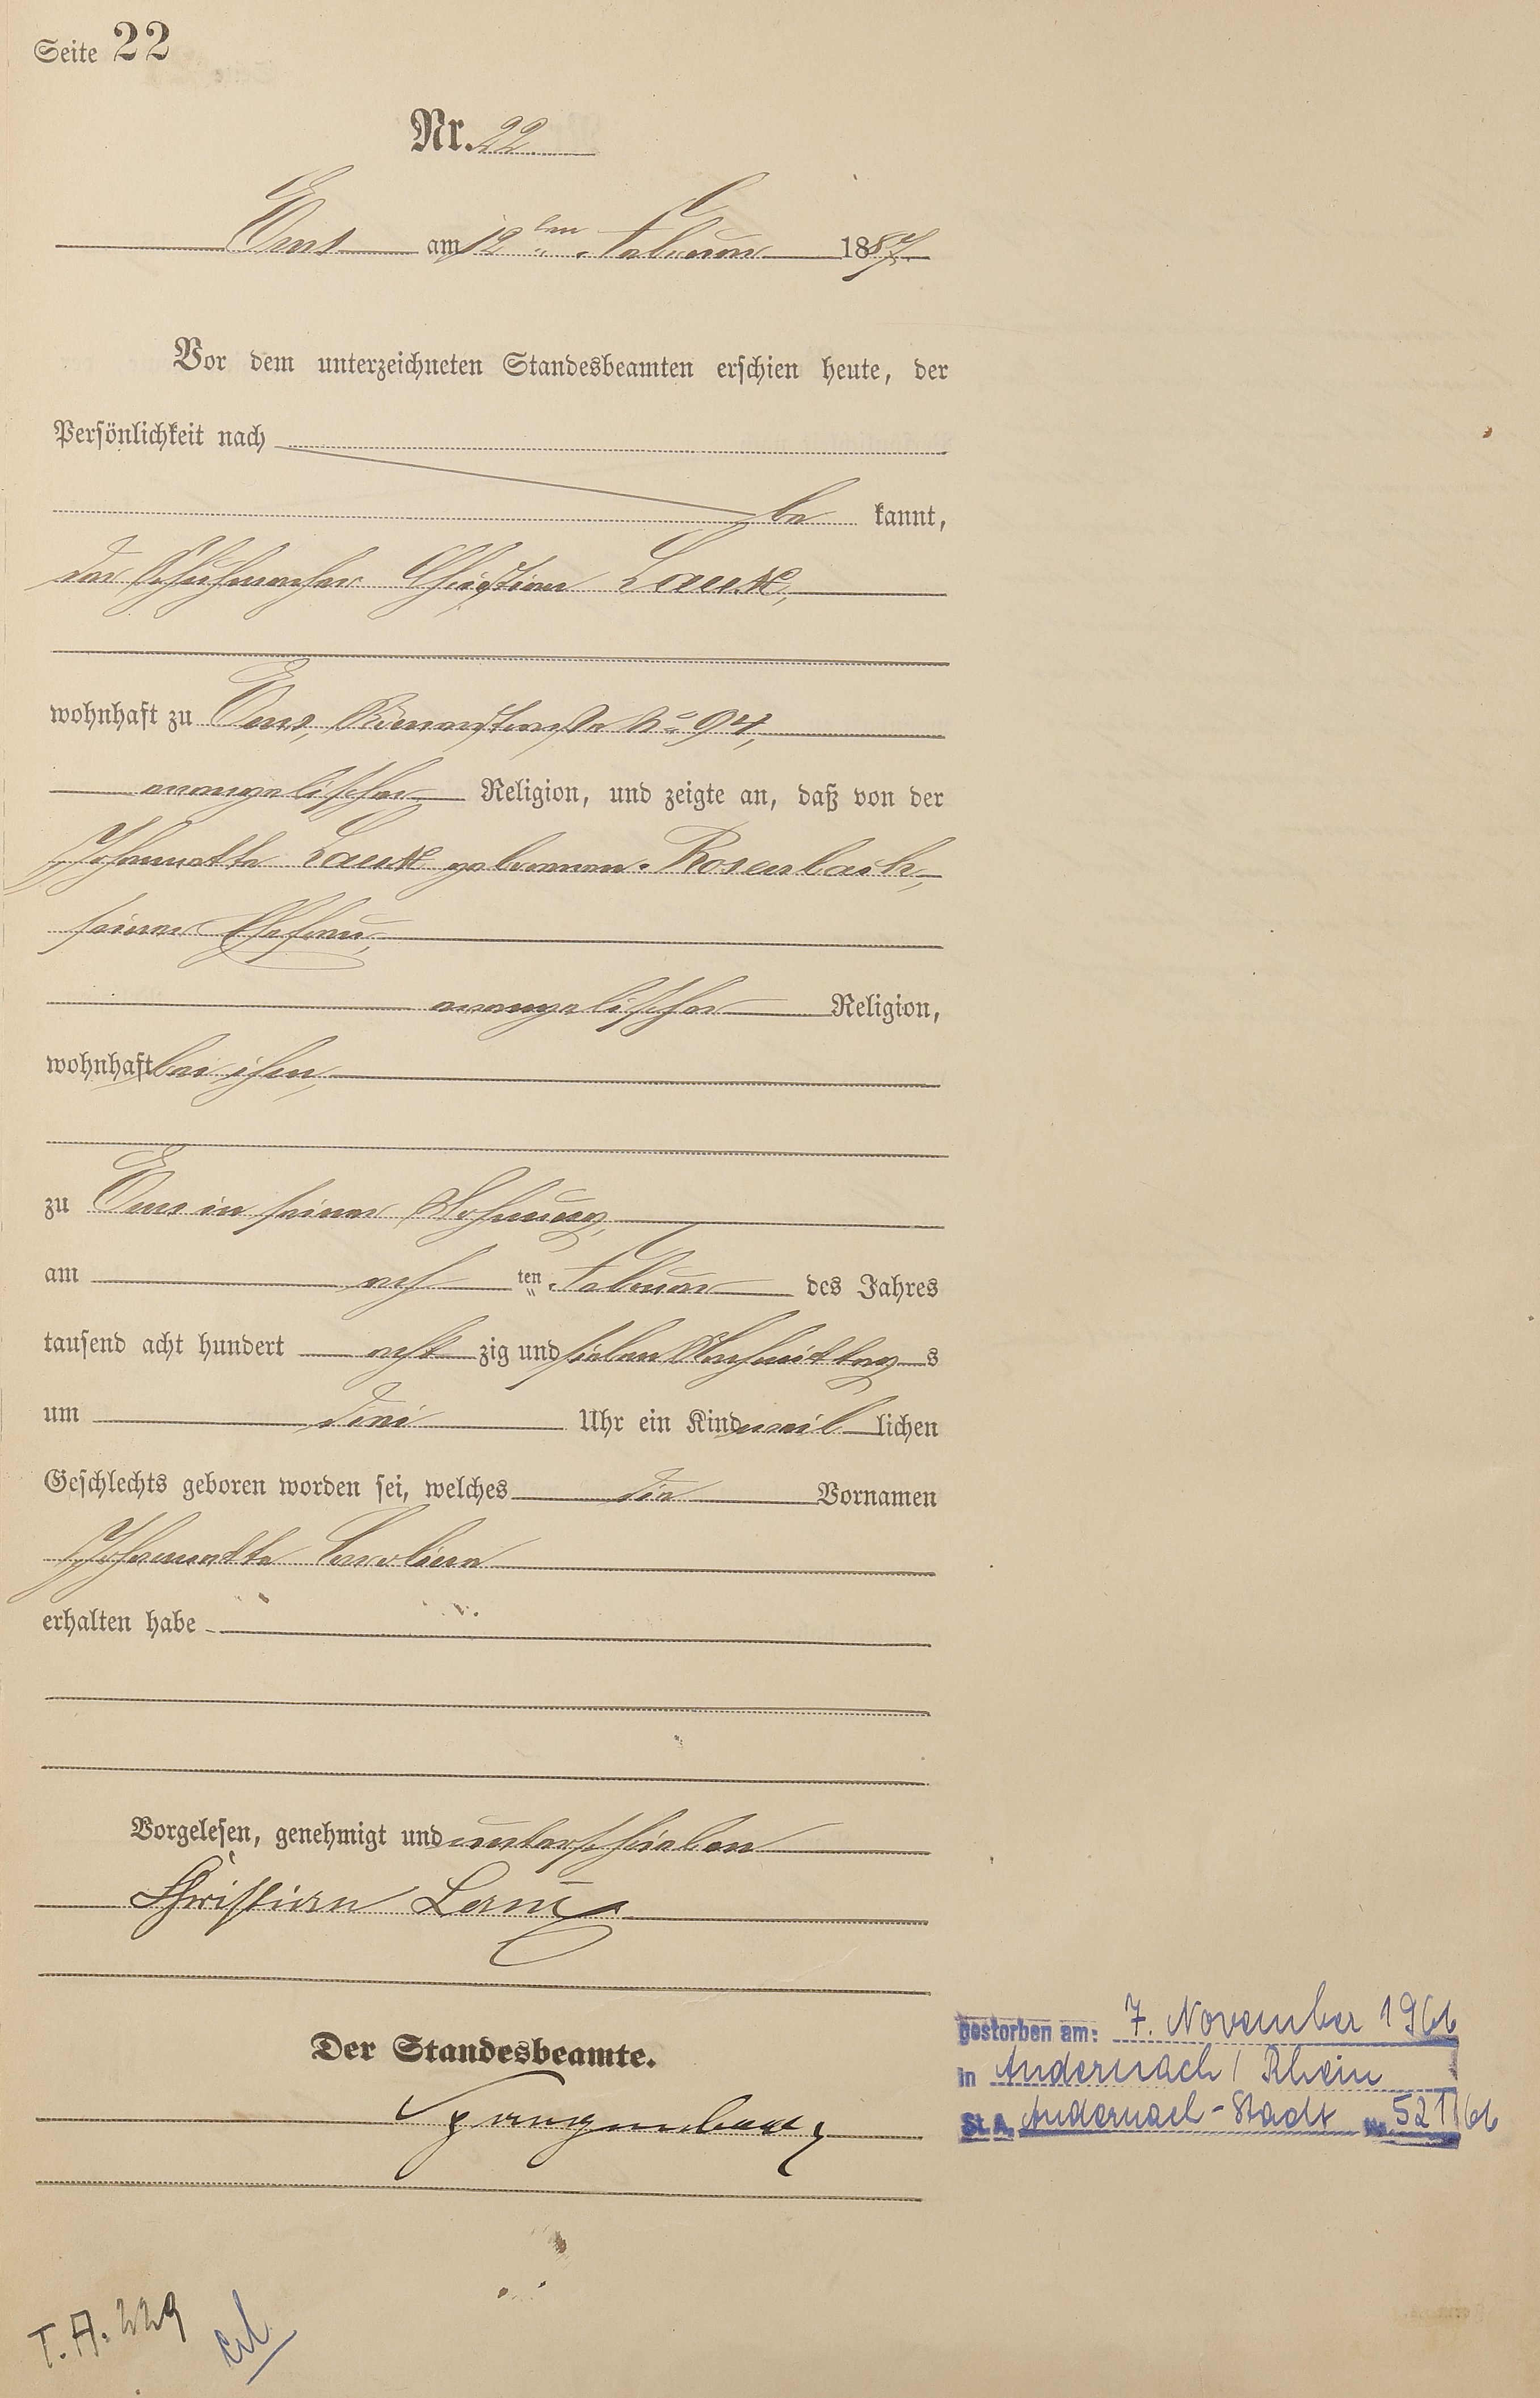 Seite 22
Nr. 22
Ems am 12ten Februar 1887.
Vor dem unterzeichneten Standesbeamten erschien heute, der
Persönlichkeit nach
be kannt,
der Schuhmacher Christian
wohnhaft zu Ems, No 94,
evangelischer Religion, und zeigte an, daß von der
Johannette geborenen Rosenbach,
seiner Ehefrau,
evangelischer Religion,
wohnhaft bei ihm,
zu Ems in seiner Wohnung,
am acht ten Februar des Jahres
tausend acht hundert acht zig und sieben Nachmittag s
um drei Uhr ein Kind weib lichen
Geschlechts geboren worden sei, welches die Vornamen
Johannette Caroline
erhalten habe
Vorgelesen, genehmigt und unterschrieben
Christian
Der Standesbeamte.
gestorben am: 7. November 1966
in Andernach / Rhein
St. A. Andernach-Stadt Nr. 521/66
T. A. 229